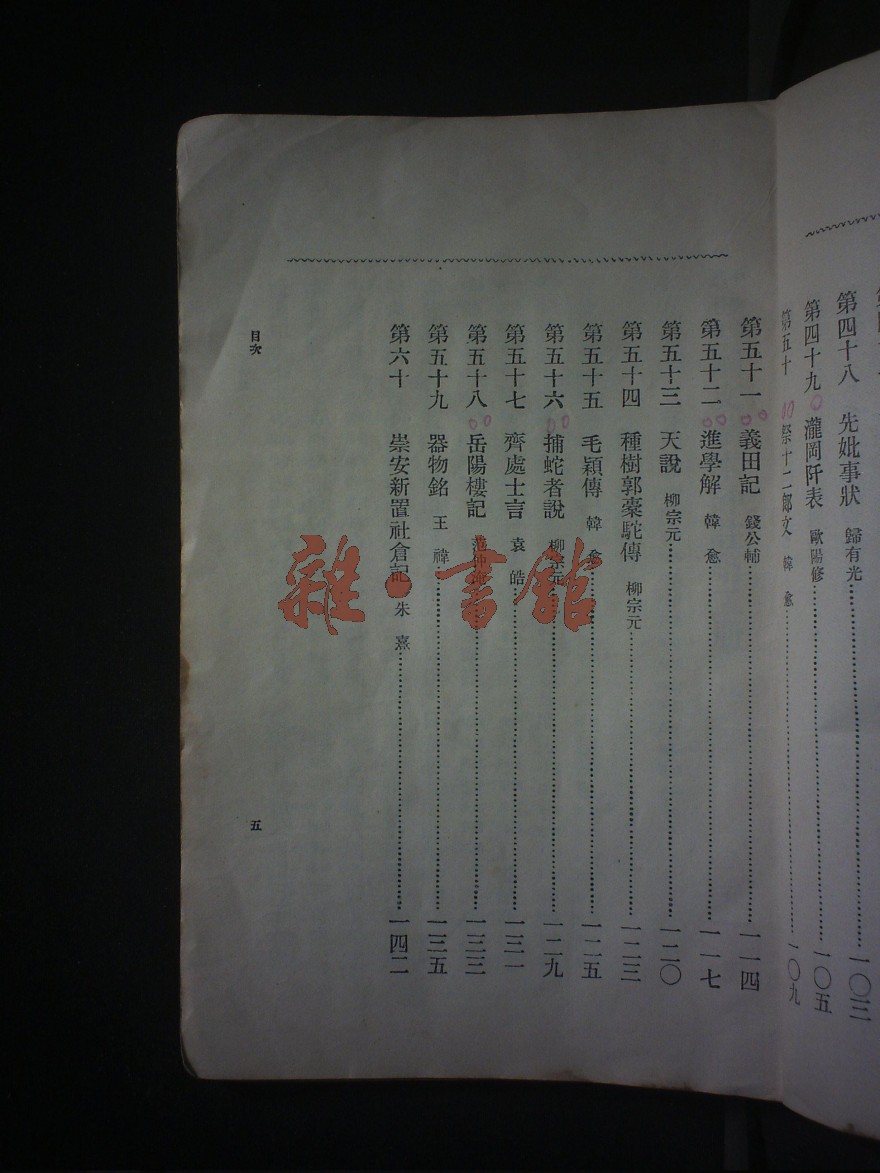 第四十八 先妣事狀 歸有光 一〇三
第四十九 瀧岡阡表 歐陽修 一〇五
第五十 祭十二郎文 韓愈 一〇九
第五十一 義田記 錢公輔 一一四
第五十二 進學解 韓愈 一一七
第五十三 天說 柳宗元 一二〇
第五十四 種樹郭橐駝傳 柳宗元 一二三
第五十五 毛穎傳 韓愈 一二五
第五十六 捕蛇者說 柳宗元 一二九
第五十七 齊處士言 袁皓 一三一
第五十八 岳陽樓記 范仲 一三三
第五十九 器物銘 王禕 一三五
第六十 崇安新置社倉記 朱熹 一四二
目次
五
雜·書館